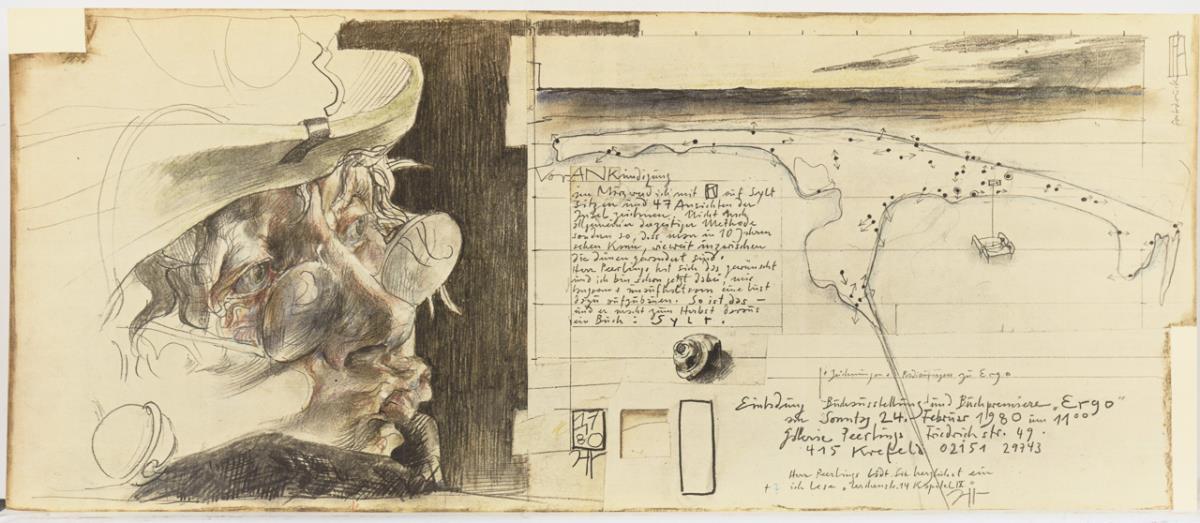 VorANKündigung
im März werd ich mit H auf Sylt
sitzen und 47 Ansichten der
Insel zeichnen. Nicht nach
allgemeiner derzeitiger Methode
sondern so, dass man in 10 Jahren
sehen kann, wieweit inzwischen
die dünen gewandert sind.
Herr Peerlings hat sich das gewünscht
und ich bin schon jetzt dabei, mir
eine Lust
dazu aufzubauen. So ist das —
und er macht zum Herbst daraus
ein Buch: Sylt.
Zeichnungen zu Ergo
Einladung Buchausstellung und Buchpremiere „Ergo"
am Sonntag 24. Februar 1980 um 11⁰⁰
Galerie Peerlings Friedrichstr. 49.
415 Krefeld 02151 29743
Herr Peerlings lädt Sie herzlichst ein
+ ich lese
17
1
80